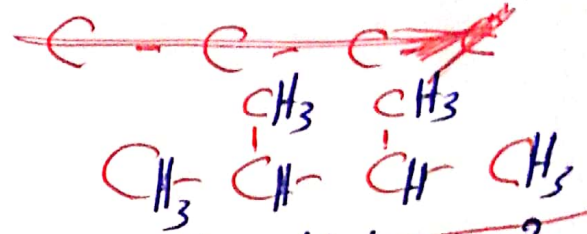 C - C - C C
CH3 CH3
CH3 - CH - CH - CH3